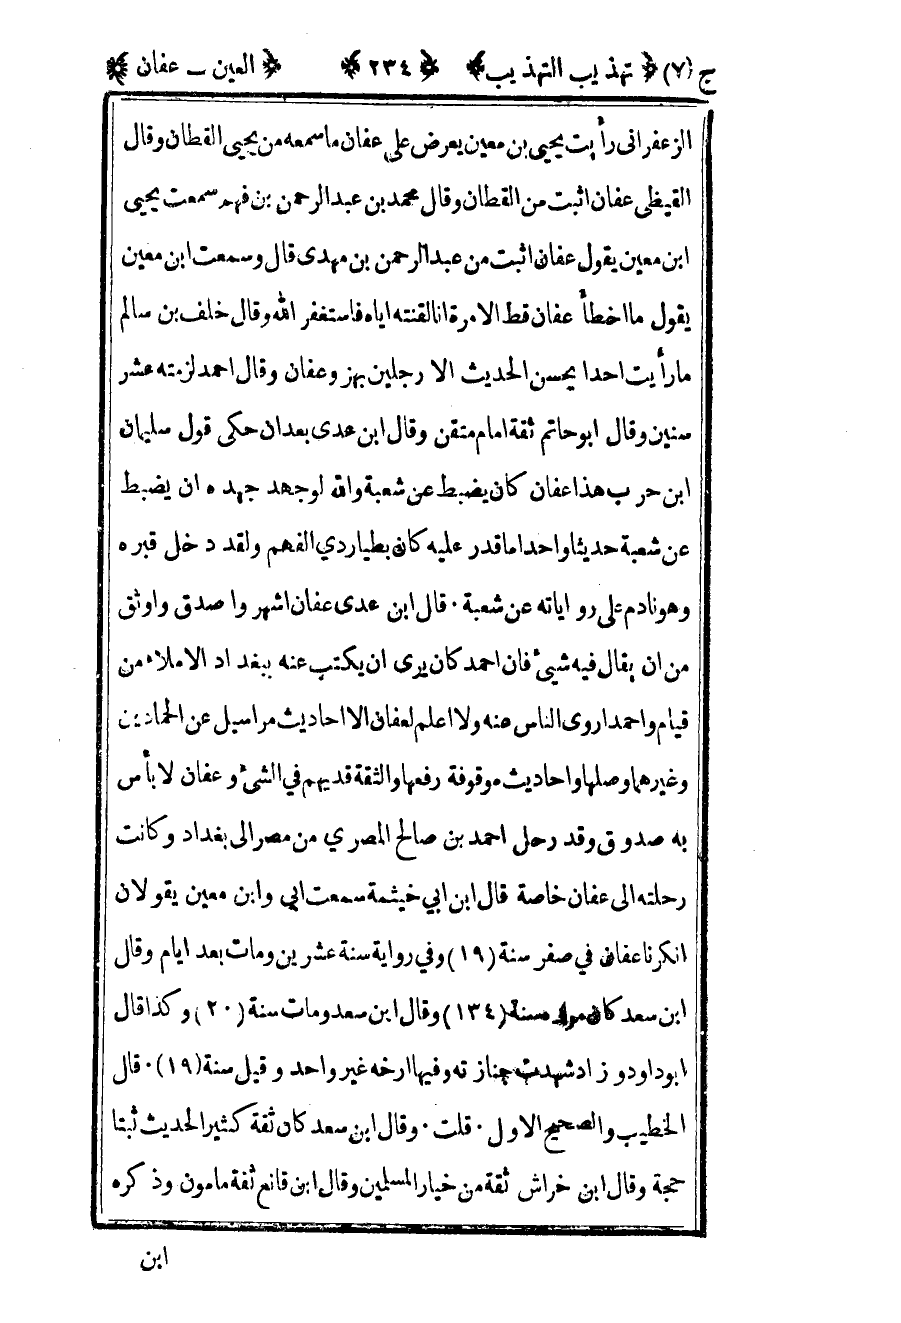 ج (٧) ﴿ تهذيب التهذيب ﴾ ﴿ ٢٣٤ ﴾ ﴿ العين – عفان ﴾
الزعفرانى رأيت يحيى بن معين يعرض على عفان ماسمعه من يحيى القطان وقال
القيظى عفان اثبت من القطان وقال محمد بن عبد الرحمن بن فهم سمعت يحيى
ابن معين يقول عفان اثبت من عبد الرحمن بن مهدى قال وسمعت ابن معين
يقول ما اخطأ عفان قط الا مرة انا لقنته اياه فاستغفر الله وقال خلف بن سالم
ما رأيت احدا يحسن الحديث الا رجلين بهز وعفان وقال احمد لزمته عشر
سنين وقال ابوحاتم ثقة امام متقن وقال ابن عدى بعد ان حكى قول سليمان
ابن حرب هذا عفان كان يضبط عن شعبة والله لو جهد جهده ان يضبط
عن شعبة حديثا واحدا ما قدر عليه كان بطيا ردي الفهم ولقد دخل قبره
وهو نادم على رواياته عن شعبة · قال ابن عدى عفان اشهر واصدق واوثق
من ان يقال فيه شيئ فان احمد كان يرى ان يكتب عنه ببغداد الاملاء من
قيام واحمد اروى الناس عنه ولا اعلم لعفان الا احاديث مراسيل عن الحمادين
وغيرهما وصلها واحاديث موقوفة رفعها والثقة قد يهم في الشئ وعفان لا بأس
به صدوق وقد رحل احمد بن صالح المصري من مصر الى بغداد وكانت
رحلته الى عفان خاصة قال ابن ابي خيثمة سمعت ابي وابن معين يقولان
انكرنا عفان في صفر سنة (١٩) وفي رواية سنة عشرين ومات بعد ايام وقال
ابن سعد كان مولده سنة (١٣٤) وقال ابن سعد ومات سنة (٢٠) وكذا قال
ابوداود وزاد شهدت جنازته وفيها ارخه غير واحد وقيل سنة (١٩) · قال
الخطيب والصحيح الاول · قلت · وقال ابن سعد كان ثقة كثير الحديث ثبتا
حجة وقال ابن خراش ثقة من خيار المسلمين وقال ابن قانع ثقة مامون وذكره
ابن